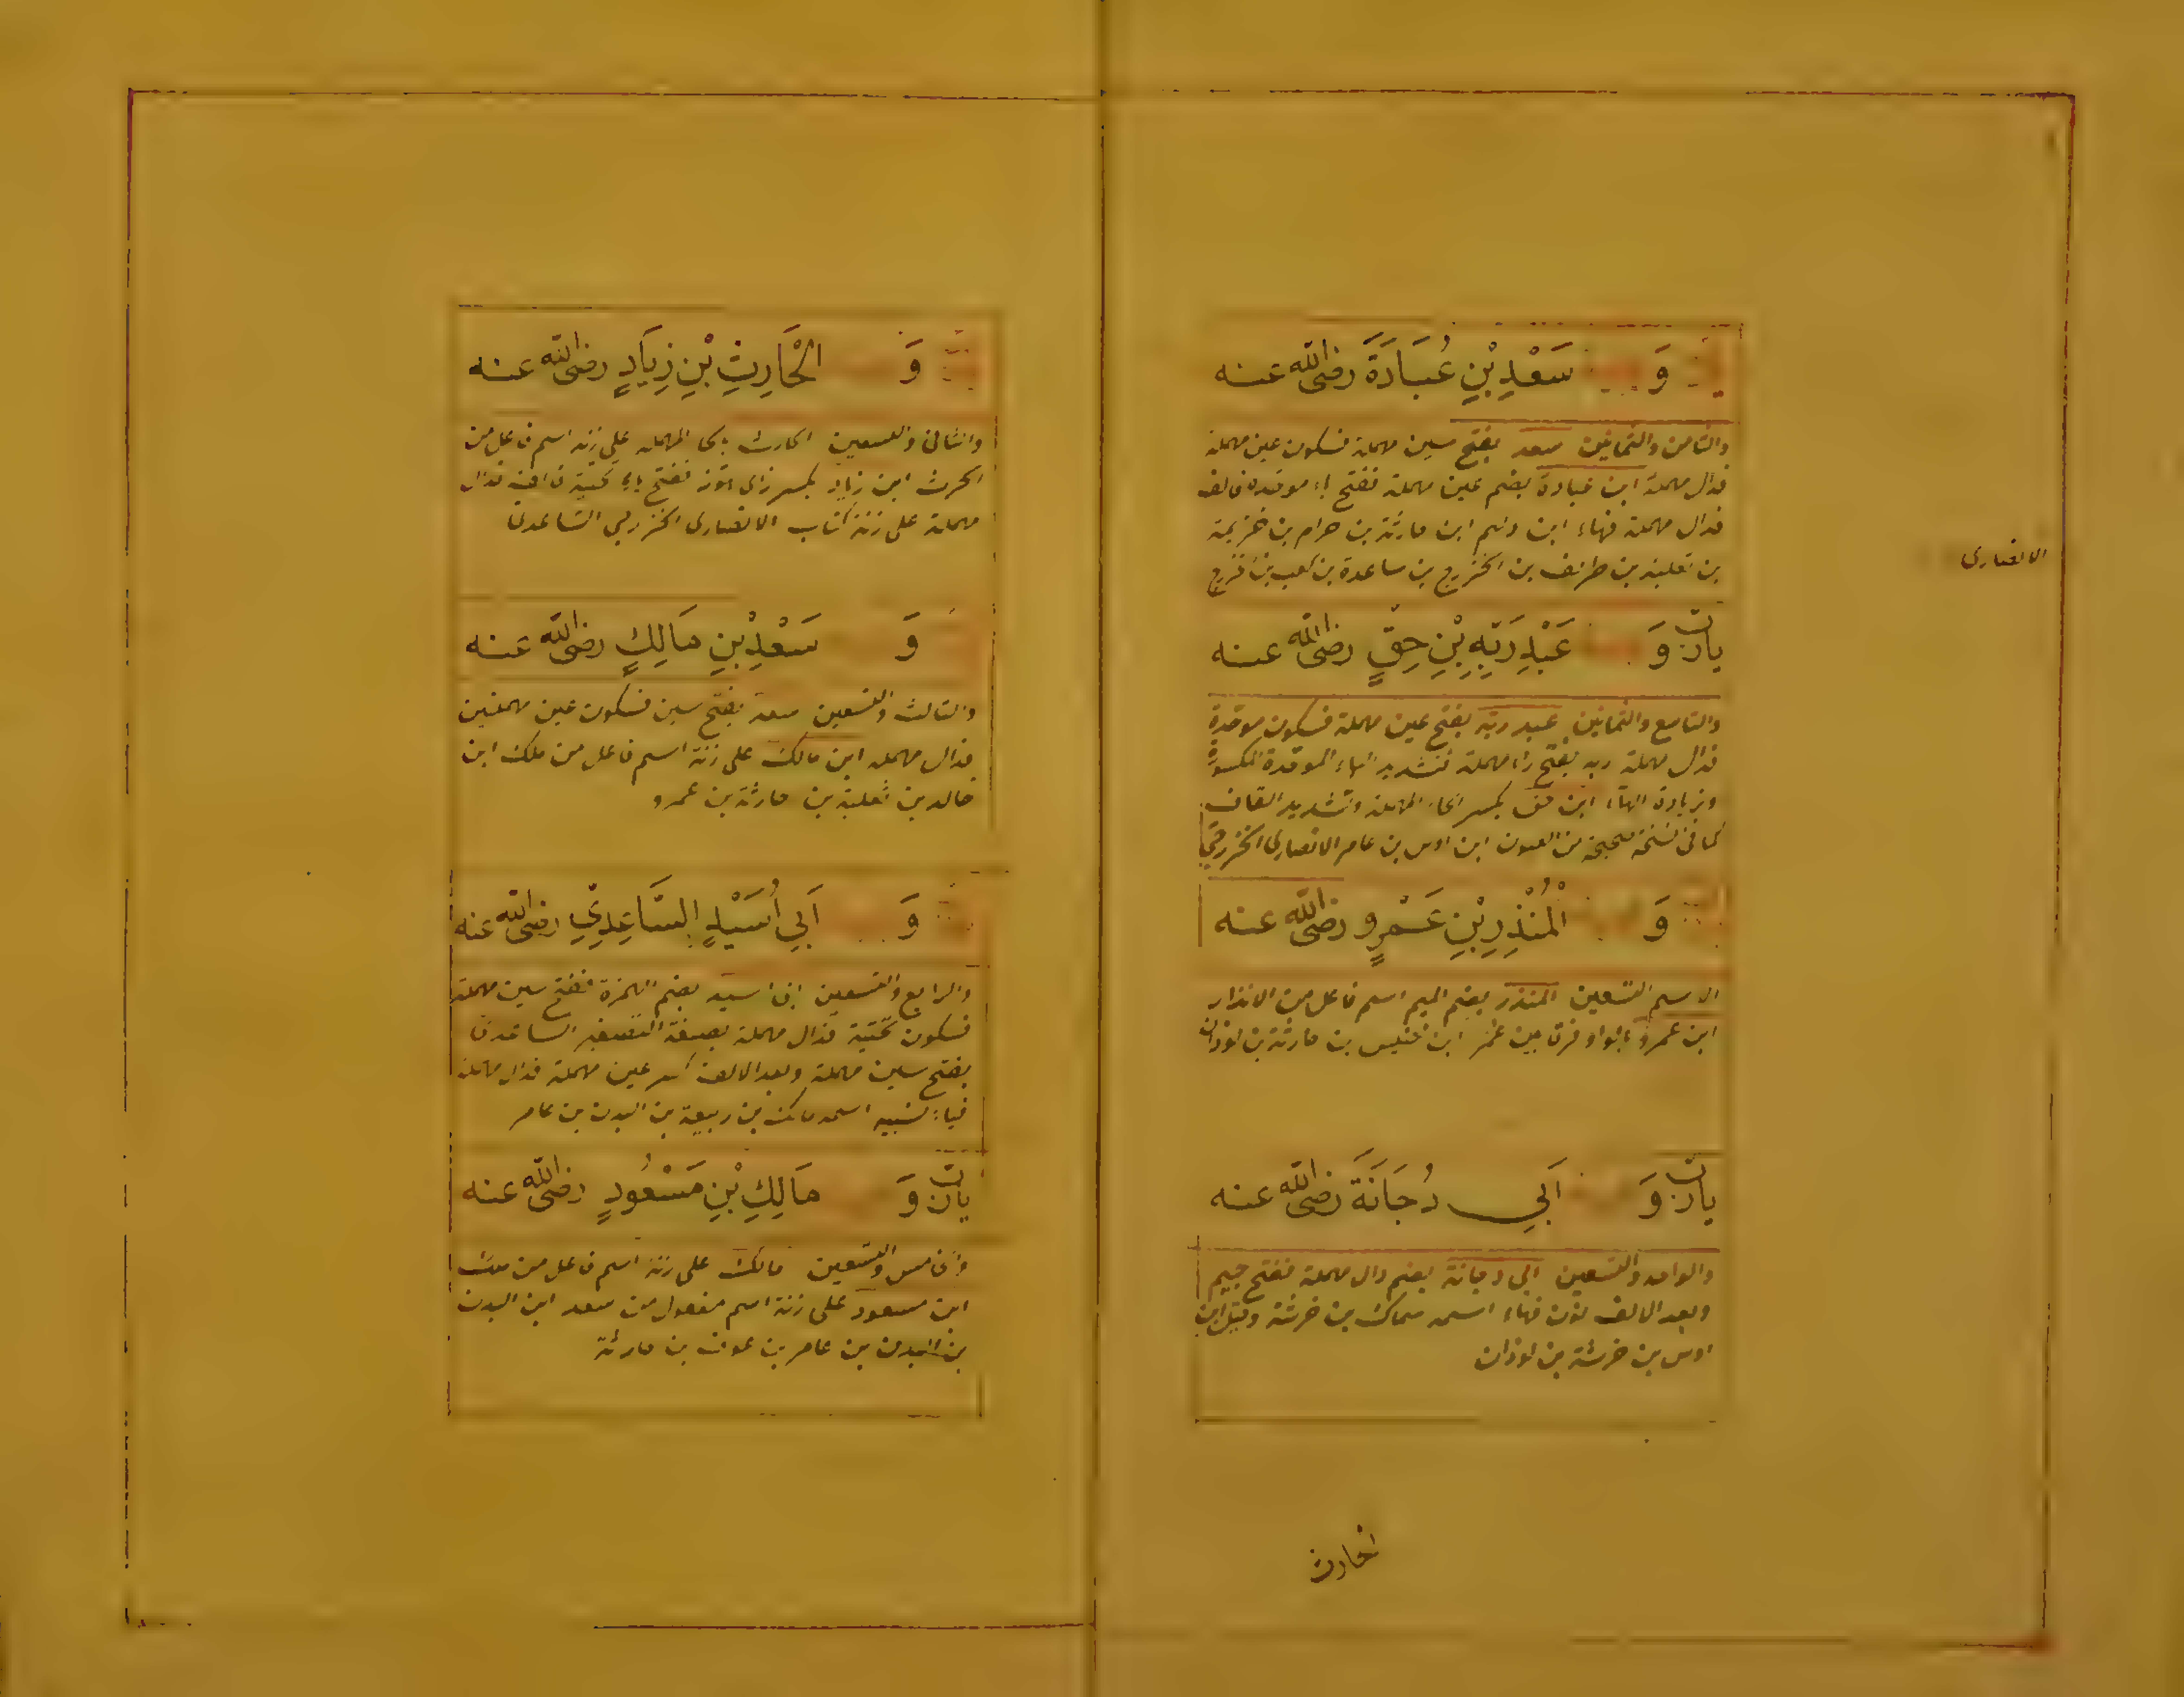 وَ سَعْدِ بْنِ عُبَادَةَ رضى الله عنه
والثامن والثمانين سعد بفتح سين مهملة فسكون عين مهملة
فدال مهملة ابن عبادة بضم عين مهملة ففتح باء موحدة فالف
فدال مهملة فهاء ابن دلم ابن حارثة بن حرام بن خزيمة
بن ثعلبة بن طريف بن الخزرج بن ساعدة بن كعب بن خزرج
الانصارى
يارب وَ عَبْدِ رَبِّهِ بْنِ حِقٍّ رضى الله عنه
والتاسع والثمانين عبد ربه بفتح عين مهملة فسكون موحدة
فدال مهملة ربه بفتح راء مهملة فتشديد الباء الموحدة المكسورة
وبزيادة الهاء ابن حق بكسر الحاء المهملة وتشديد القاف
كما فى نسخة صحيحة من العيون ابن اوس بن عامر الانصارى الخزرجى
وَ الْمُنْذِرِ بْنِ عَمْرٍو رضى الله عنه
الاسم التسعين المنذر بضم الميم اسم فاعل من الانذار
ابن عمرو بالواو فرقا بين عمر ابن خنيس بن حارثة بن لوذان
يارب وَ اَبِي دُجَانَةَ رضى الله عنه
والواحد والتسعين ابى دجانة بضم دال مهملة ففتح جيم
وبعد الالف نون فهاء اسمه سماك بن خرشة وقيل ابن
اوس بن خرشة بن لوذان
الحارث
وَ الْحَارِثِ بْنِ زِيَادٍ رضى الله عنه
والثانى والتسعين الحارث بالحاء المهملة على زنة اسم فاعل من
الحرث ابن زياد بكسر زاى هوز ففتح ياء تحتية فالف فدال
مهملة على زنة كتاب الانصارى الخزرجى الساعدى
وَ سَعْدِ بْنِ مَالِكٍ رضى الله عنه
والثالث والتسعين سعد بفتح سين فسكون عين مهملتين
فدال مهملة ابن مالك على زنة اسم فاعل من ملك ابن
خالد بن ثعلبة بن حارثة بن عمرو
وَ اَبِي اُسَيْدٍ السَّاعِدِيِّ رضى الله عنه
والرابع والتسعين ابى اسيد بضم الهمزة ففتح سين مهملة
فسكون تحتية فدال مهملة بصيغة التصغير الساعدى
بفتح سين مهملة وبعد الالف كسر عين مهملة فدال مهملة
فياء نسبية اسمه مالك بن ربيعة بن البدن بن عامر
يارب وَ مَالِكِ بْنِ مَسْعُودٍ رضى الله عنه
والخامس والتسعين مالك على زنة اسم فاعل من ملك
ابن مسعود على زنة اسم مفعول من سعد ابن البدن
بن البدن بن عامر بن عوف بن حارثة